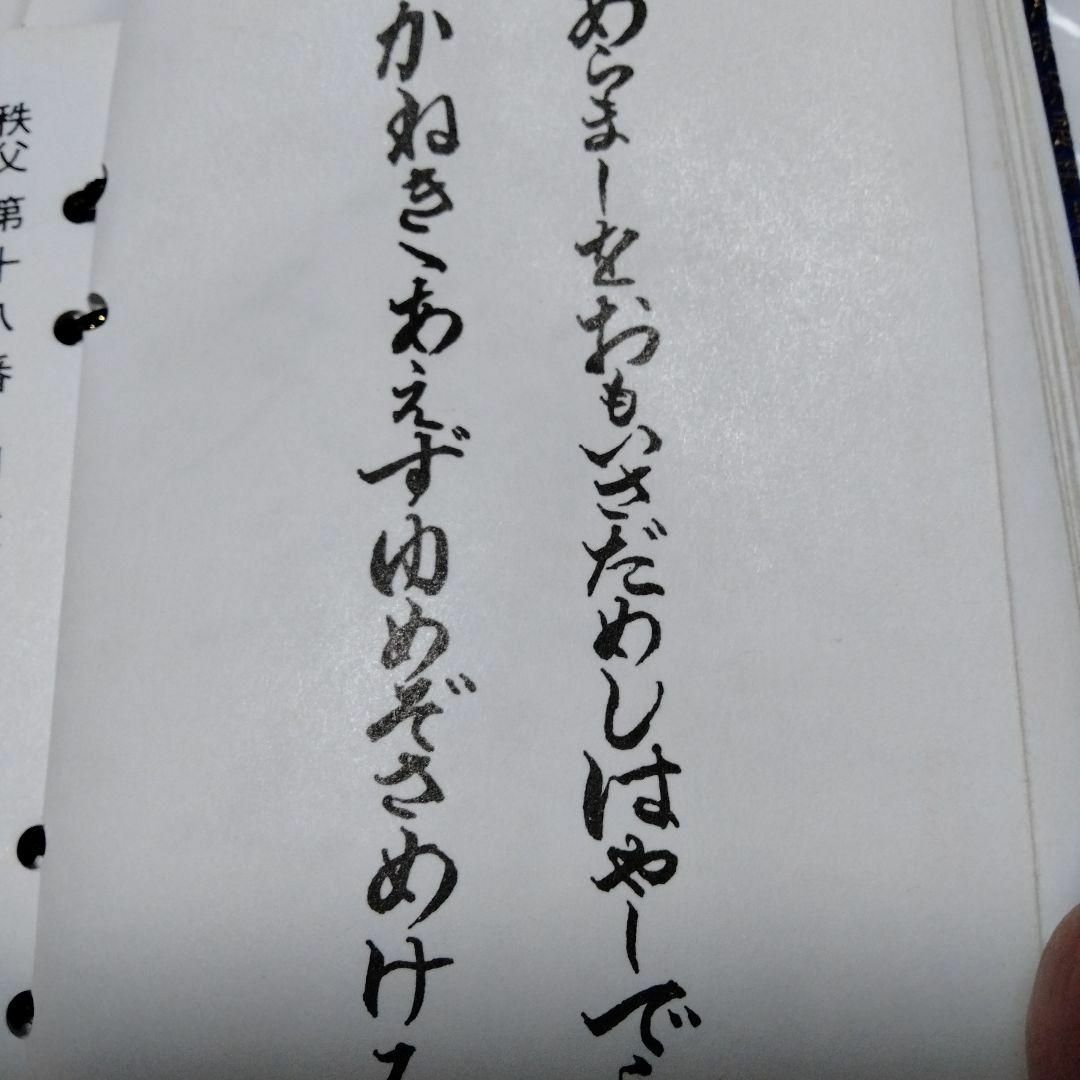 あらましをおもいさだめしはやしでら
かねきゝあえずゆめぞさめける
秩父第十八番